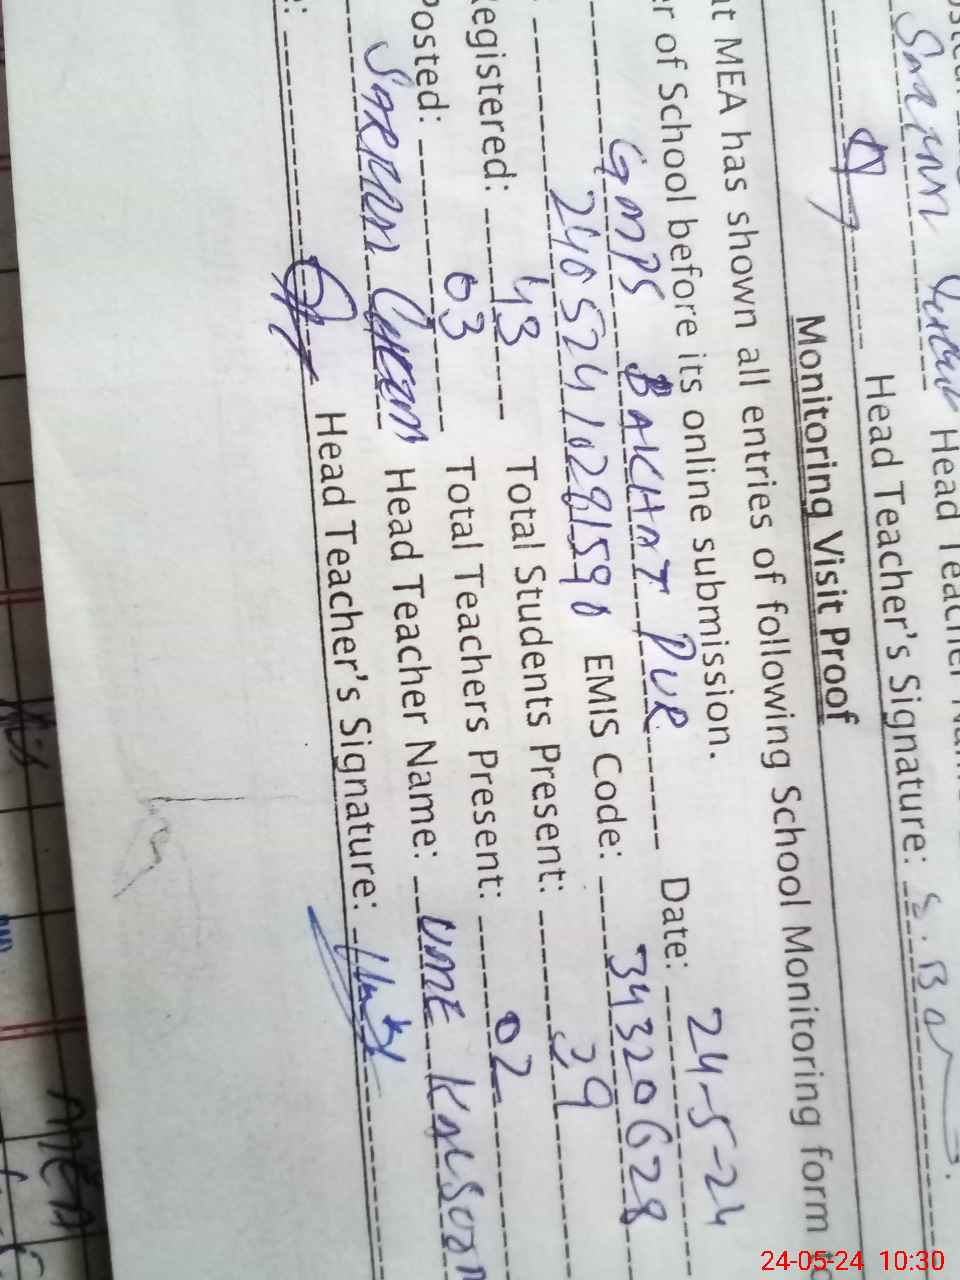 Head Teacher
Head Teacher's Signature: S.Ba
Monitoring Visit Proof
at MEA has shown all entries of following School Monitoring form to
er of School before its online submission.
GMPS BAKHAT PUR Date: 24-5-24
24052410281590 EMIS Code: 34320628
Registered: 43 Total Students Present: 39
Posted: 03 Total Teachers Present: 02
Head Teacher Name: UME KALSOOM
Head Teacher's Signature:
MEA
24-05-24 10:30